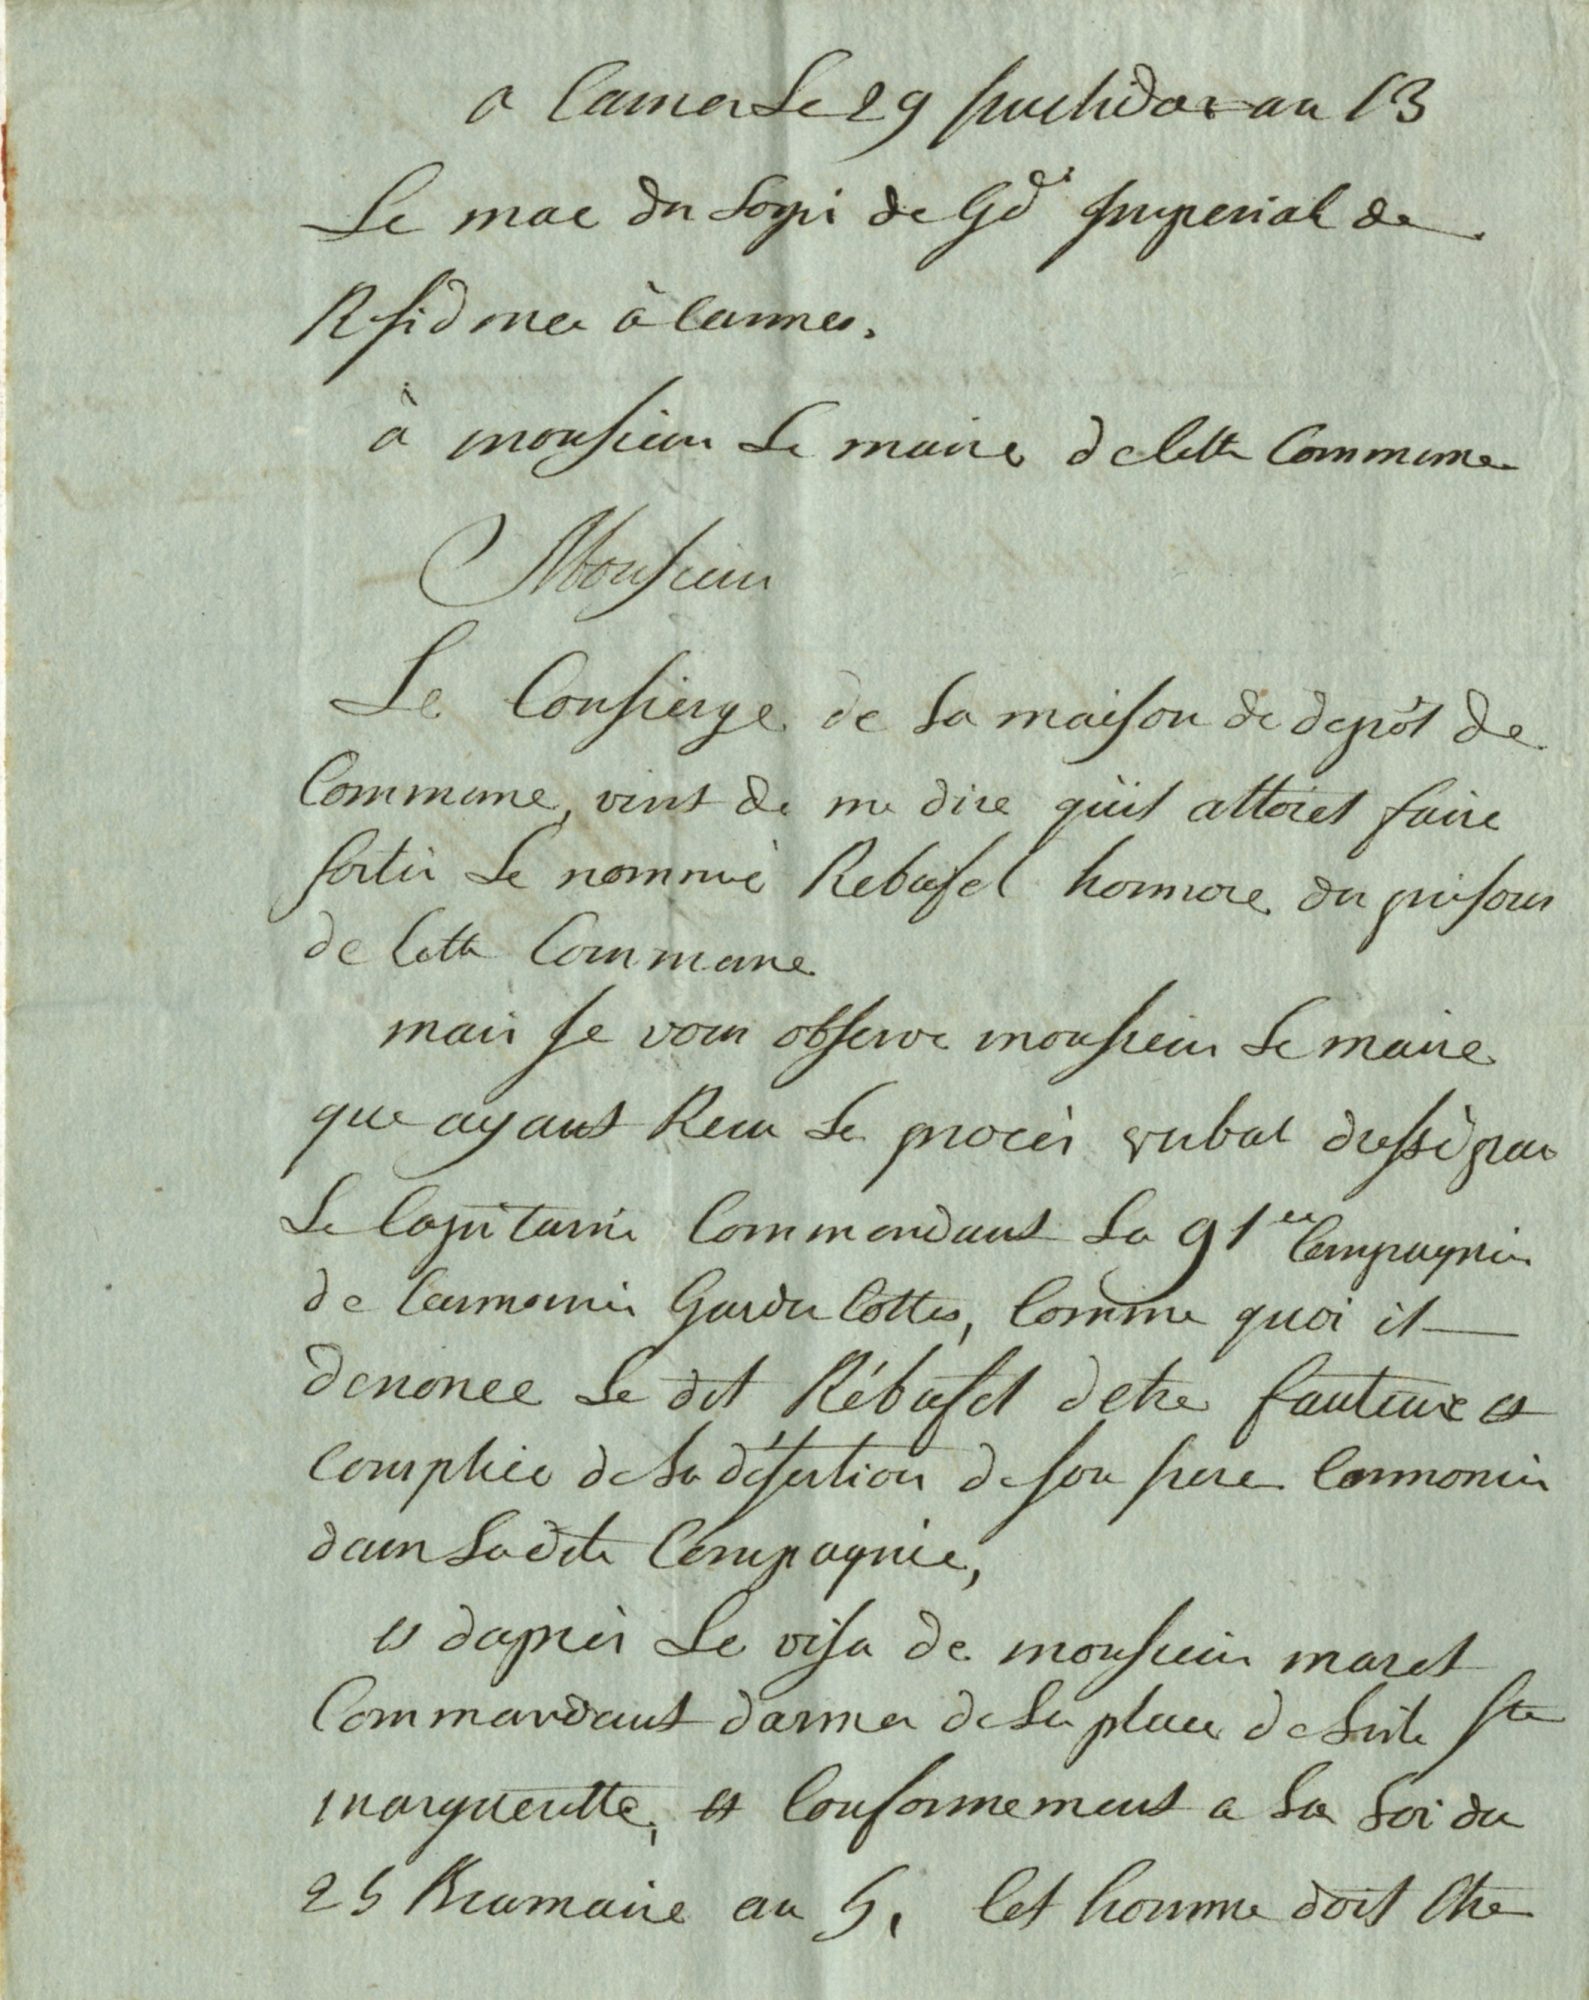 a Cannes Le 29 fructidor an 13
Le mal du Logis de Gd.ie Imperial de
Residence à Cannes.
à monsieur Le maire de Cette Commune
Monsieur
Le Consierge de La maison de depôt de
Commune, vint de me dire qu'il alloiet faire
sortir Le nommé Rebufel honnore du prisons
de Cette Commune
mais je vous observe monsieur Le maire
que ayant Recu Le procès verbal dressé par
Le Capitaine Commandant La 91.e Compagnie
de Canonnier Gardes Cottes, Comme quoi il
denonce Le dit Rébufel d'etre fauteure et
Complice de La désertion de son frere Cannonier
dans La dite Compagnie,
et daprès Le visa de monsieur maret
Commandant darmes de La place de Lisle Ste
marguerite, et Conformement a La Loi du
25 Brumaire an 5, Cet homme doit Etre